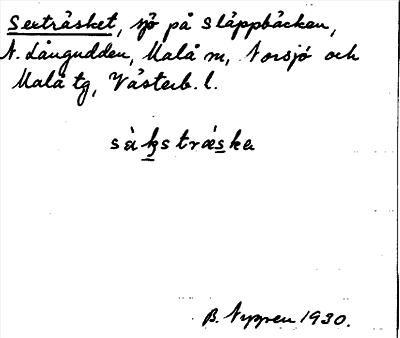 Sexträsket, sjö på Släppbäcken,
N. Långudden, Malå sn, Norsjö och
Malå tg, Västerb. l.
sàk̲stræ̀s̲ka
B. Nygren 1930.